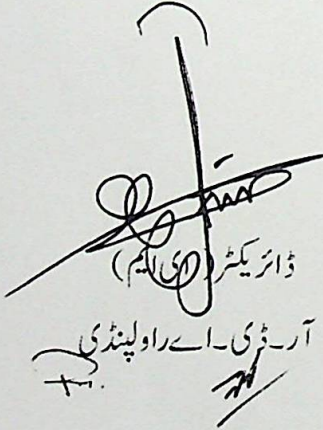 ڈائریکٹر (ای ایم)
آر۔ڈی۔اے راولپنڈی